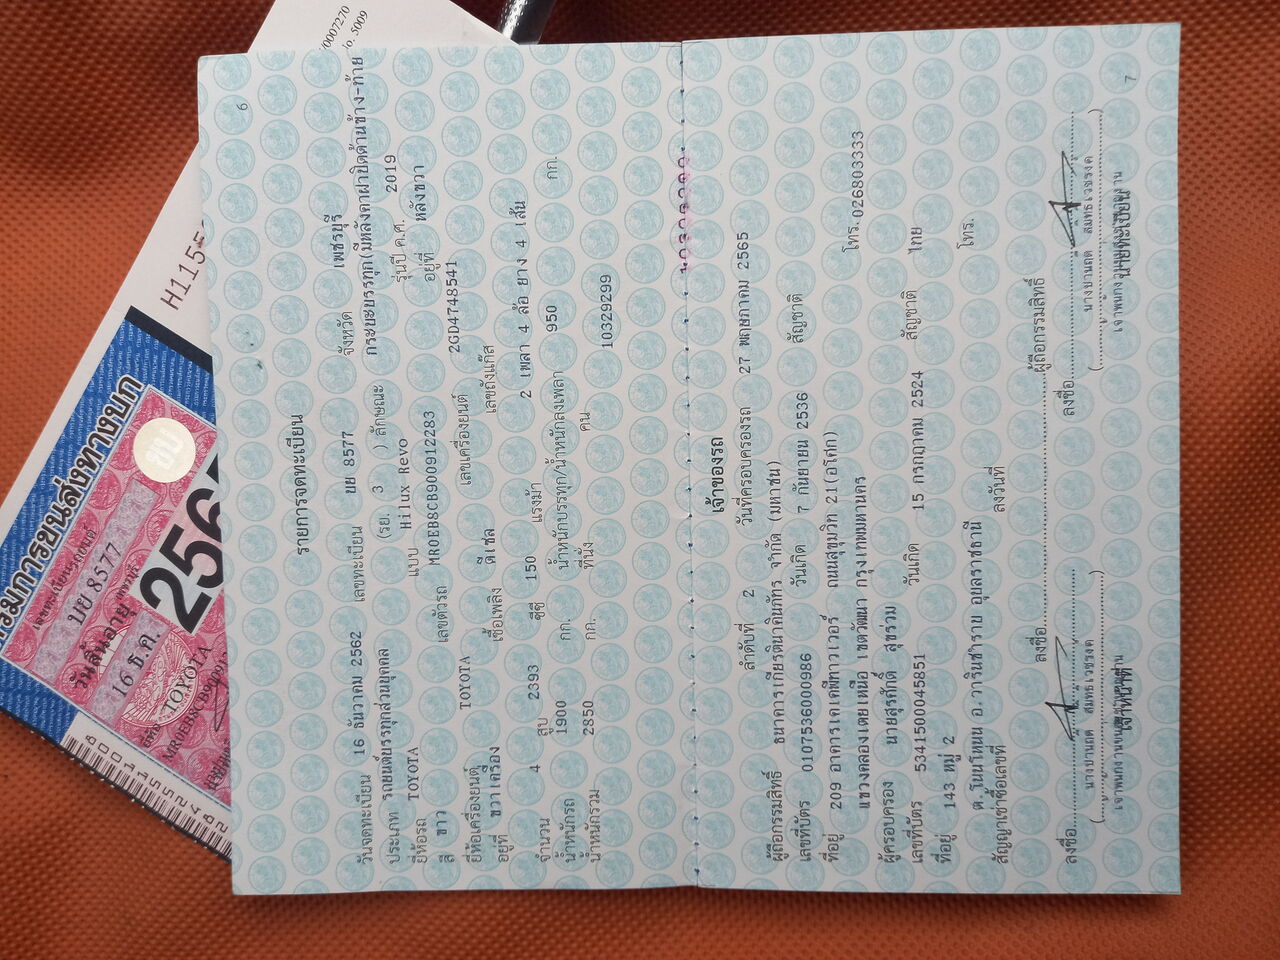 6
รายการจดทะเบียน
วันจดทะเบียน 16 ธันวาคม 2562 เลขทะเบียน บย 8577 จังหวัด เพชรบุรี
ประเภท รถยนต์บรรทุกส่วนบุคคล (รย. 3 ) ลักษณะ กระบะบรรทุก(มีหลังคาฝาปิดด้านข้าง-ท้าย
ยี่ห้อรถ TOYOTA แบบ Hilux Revo รุ่นปี ค.ศ. 2019
สี ขาว เลขตัวรถ MR0EB8CB900912283 อยู่ที่ หลังขวา
ยี่ห้อเครื่องยนต์ TOYOTA เลขเครื่องยนต์ 2GD4748541
อยู่ที่ ขวาเครื่อง เชื้อเพลิง ดีเซล เลขถังแก๊ส
จำนวน 4 สูบ 2393 ซีซี 150 แรงม้า 2 เพลา 4 ล้อ ยาง 4 เส้น
น้ำหนักรถ 1900 กก. น้ำหนักบรรทุก/น้ำหนักลงเพลา 950 กก.
น้ำหนักรวม 2850 กก. ที่นั่ง คน 10329299
เจ้าของรถ
ลำดับที่ 2 วันที่ครอบครองรถ 27 พฤษภาคม 2565
ผู้ถือกรรมสิทธิ์ ธนาคารเกียรตินาคินภัทร จำกัด (มหาชน)
เลขที่บัตร 0107536000986 วันเกิด 7 กันยายน 2536 สัญชาติ
ที่อยู่ 209 อาคารเคเคพีทาวเวอร์ ถนนสุขุมวิท 21(อโศก)
แขวงคลองเตยเหนือ เขตวัฒนา กรุงเทพมหานคร โทร.026803333
ผู้ครอบครอง นายสุรศักดิ์ สุขร่วม
เลขที่บัตร 5341500045851 วันเกิด 15 กรกฎาคม 2524 สัญชาติ ไทย
ที่อยู่ 143 หมู่ 2
ต.โนนโหนน อ.วารินชำราบ อุบลราชธานี โทร.
สัญญาเช่าซื้อเลขที่ ลงวันที่
ลงชื่อ ผู้ถือกรรมสิทธิ์
ลงชื่อ ลงชื่อ
7
กรมการขนส่งทางบก
บย 8577
วันสิ้นอายุ
16 ธ.ค.
256
TOYOTA